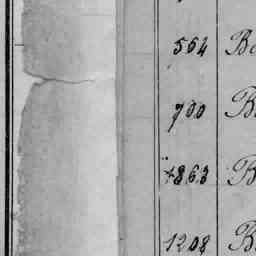 564 Be
700 B
+863 B
1208 B